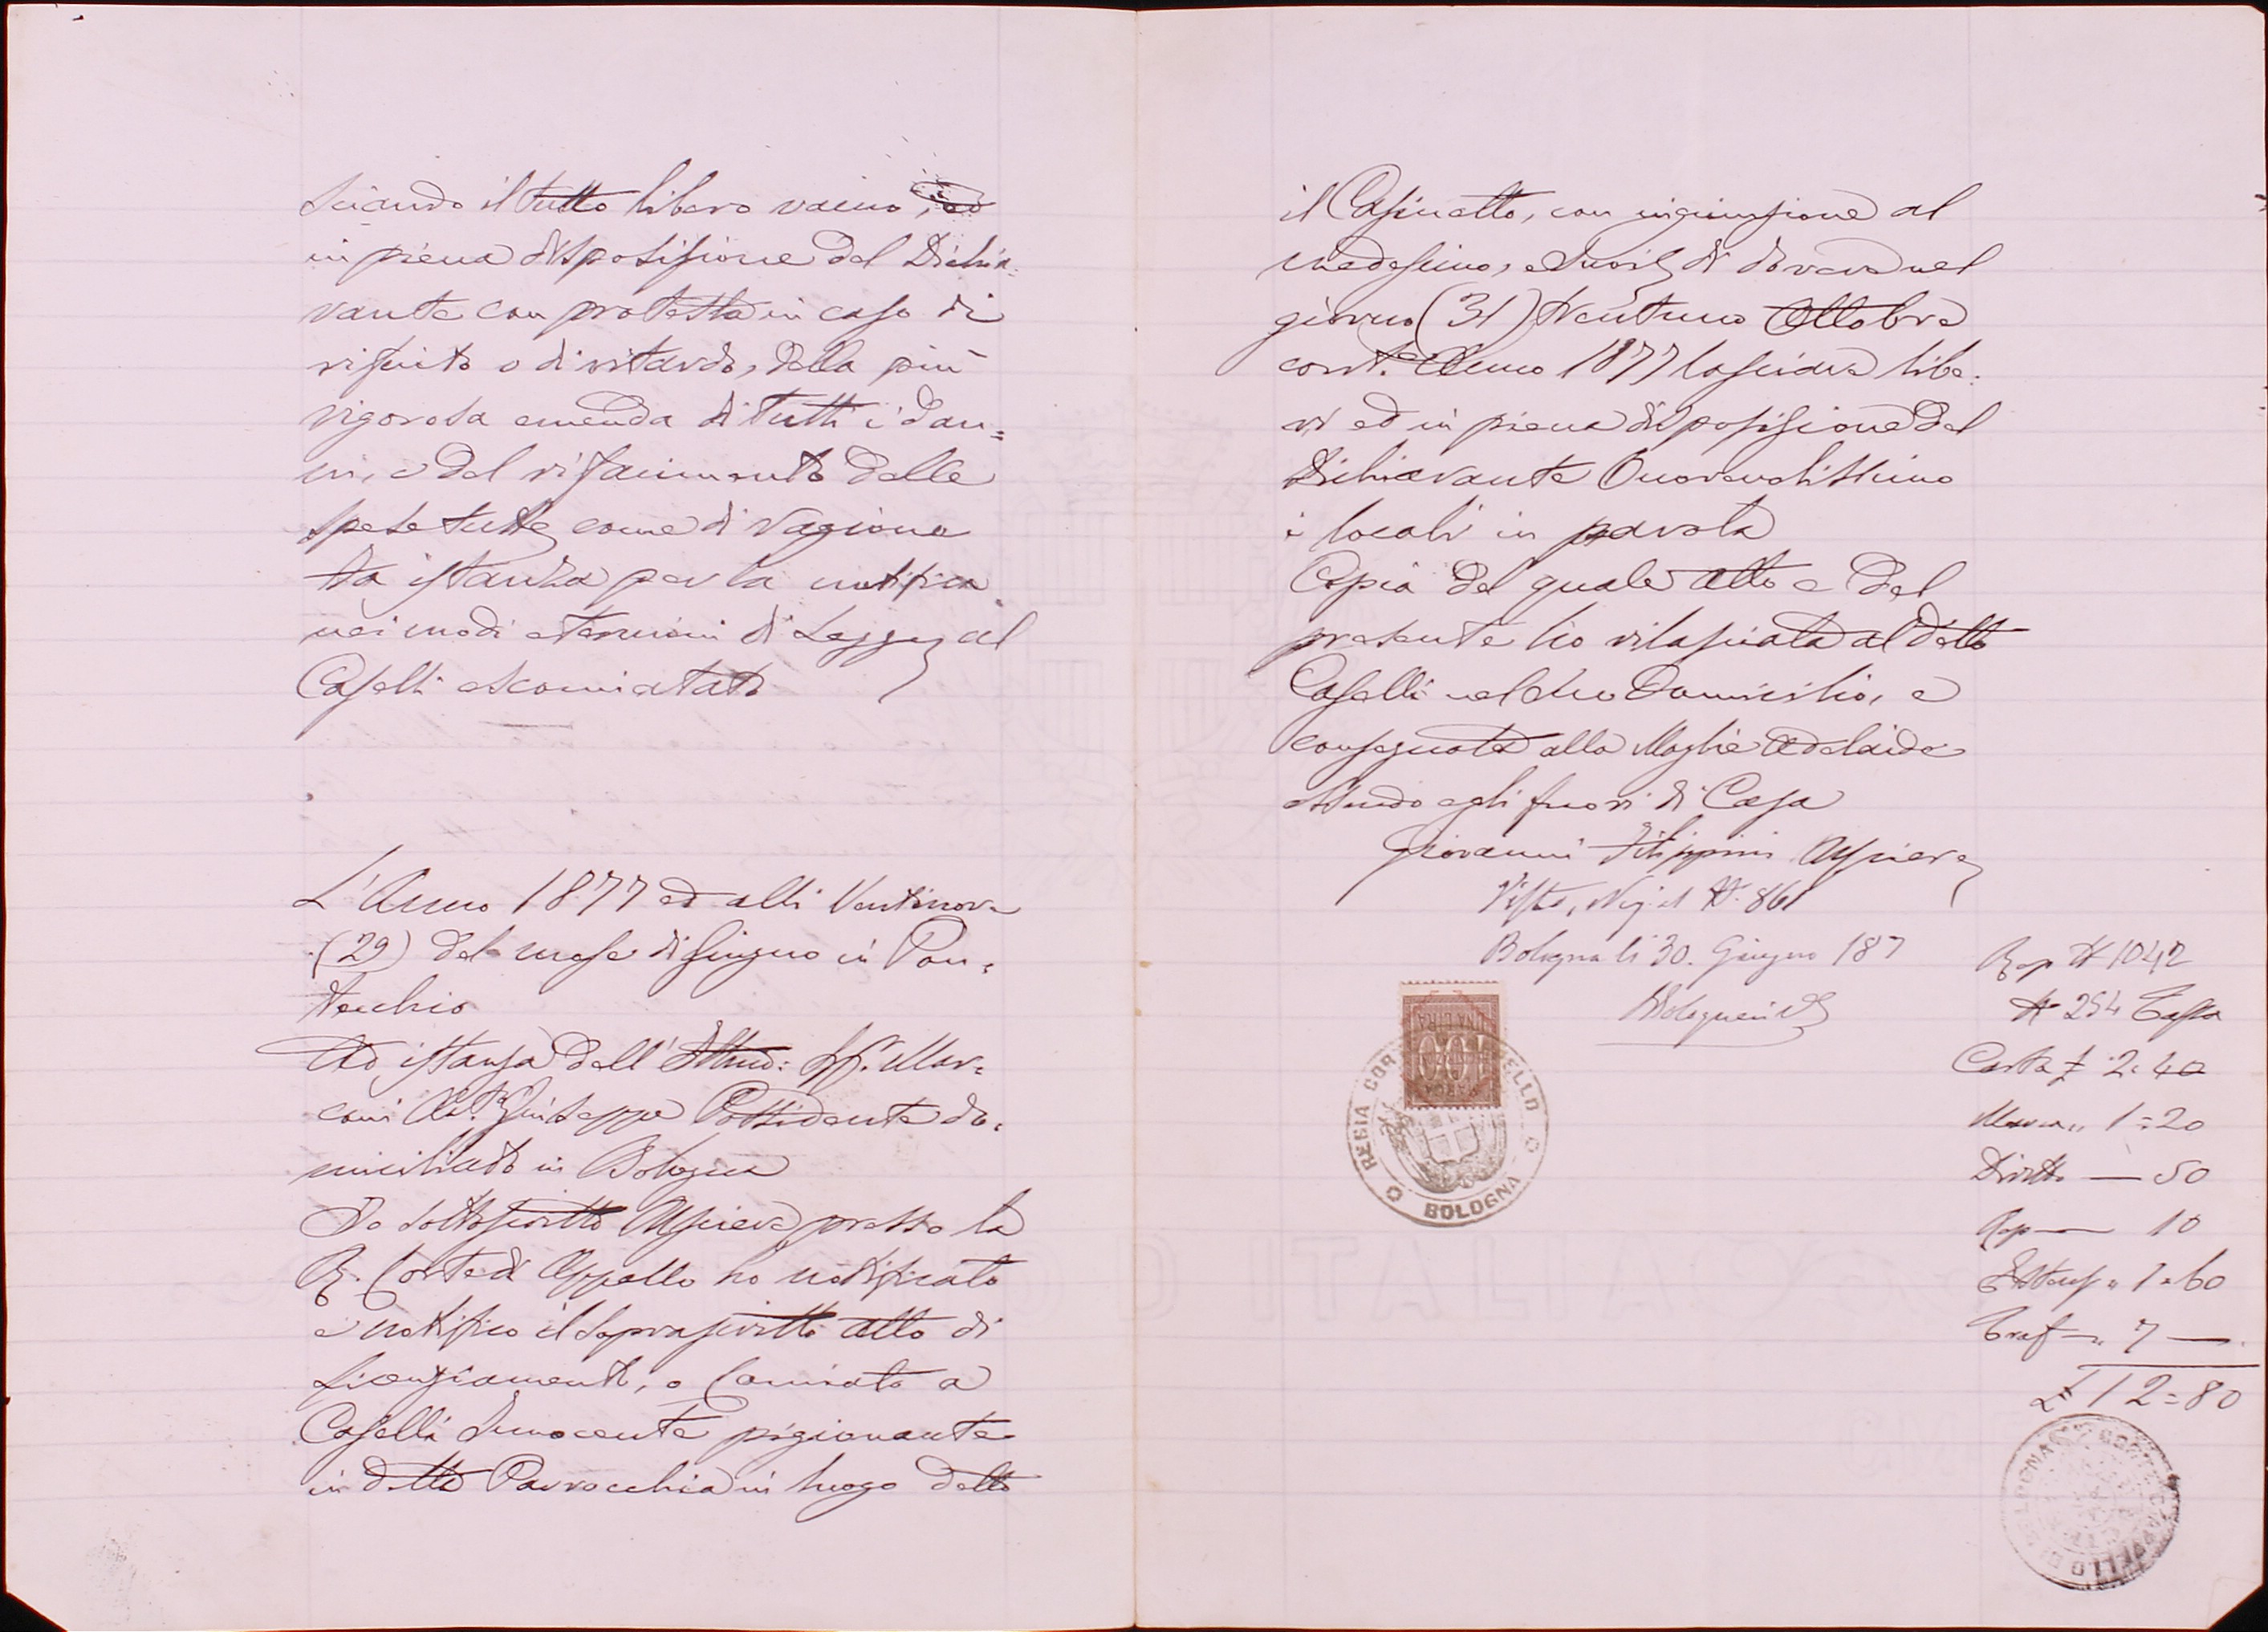 sciando il tutto libero vacuo, ed
in piena disposizione del Dichia-
rante con protesta in caso di
rifiuto o di ritardo, della più
rigorosa emenda di tutti i dan=
ni, e del rifacimento delle
spese tutte come di ragione
Fa istanza per la notifica
nei modi e termini di Legge al
Caselli escomiatato
L'Anno 1877 ed alli Ventinove
(29) del mese di Giugno in Pon=
tecchio
Ad istanza dell' Illmo: Sig. Mar=
coni Giuseppe Possidente do=
miciliato in Bologna
Io sottoscritto Usciere presso la
R. Corte di Appello ho notificato
e notifico il soprascritto atto di
Licenziamento, o Comiato a
Caselli Innocente pigionante
in detta Parrocchia in luogo detto
il Casinetto, con ingiunzione al
medesimo, e suoi di dovere nel
giorno (31) trentuno Ottobre
corrte Anno 1877 lasciare libe=
ri ed in piena disposizione del
Dichiarante Onorevolissimo
i locali in parola
Copia del quale atto e del
presente ho rilasciata al detto
Caselli nel suo Domicilio, e
consegnata alla Moglie Adelaide
essendo egli fuori di Casa
Giovanni Filippini Usciere
Visto, Reg. al N. 861
Bologna li 30. Giugno 187
Rep N 1042
N 254 Tassa
Carta £ 2. 40
Marca " 1=20
Diritto — 50
Rep — 10
Trasf — " 7 —
£ 12=80
UNA LIRA
100
REGIA CORTE D'APPELLO
BOLOGNA